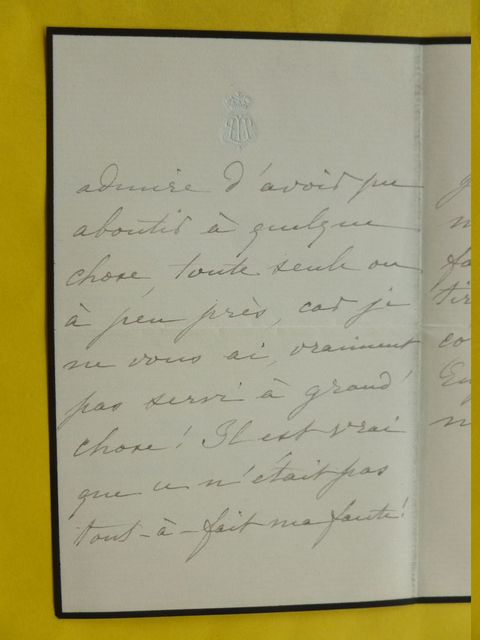 admire d'avoir pu
aboutir à quelque
chose, toute seule ou
à peu près, car je
ne vous ai, vraiment
pas servi à grand'
chose! Il est vrai
que ce n'était pas
tout-à-fait ma faute!